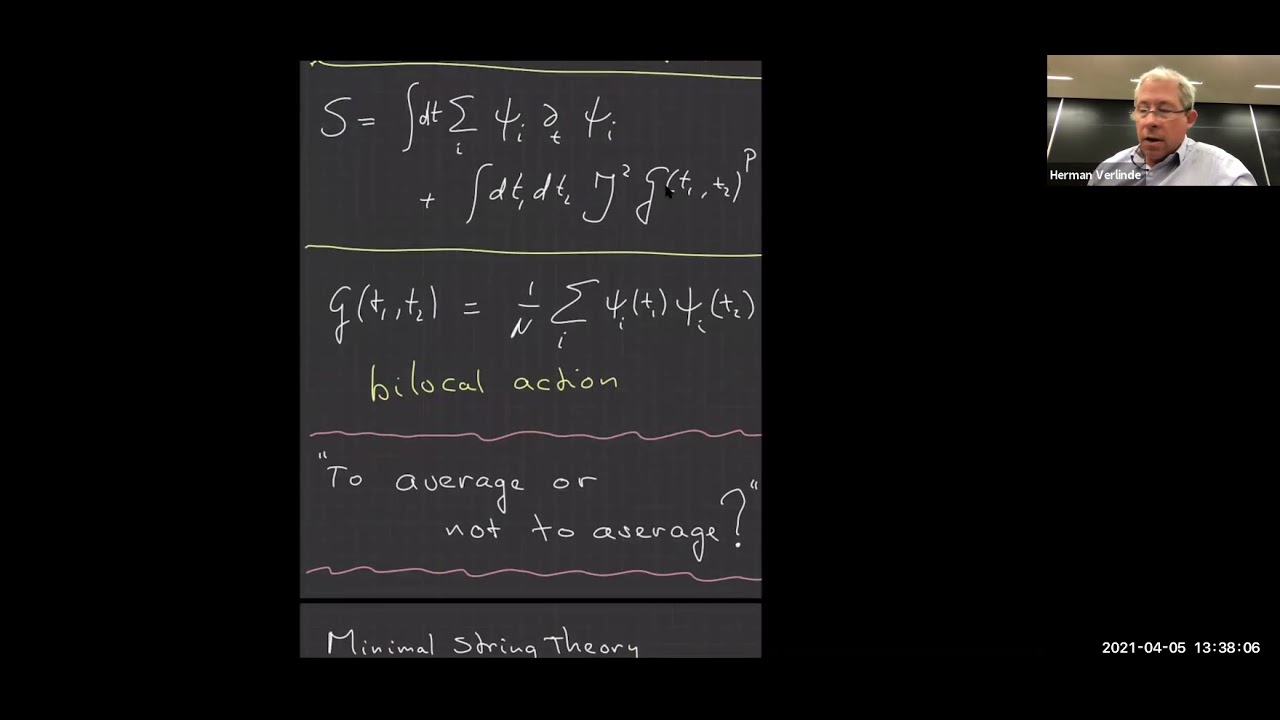 S = ∫dt Σ_i ψ_i ∂_t ψ_i
+ ∫dt_1 dt_2 J² G(t_1, t_2)^P
G(t_1, t_2) = 1/N Σ_i ψ_i(t_1) ψ_i(t_2)
bilocal action
"To average or
not to average?"
Minimal String Theory
Herman Verlinde
2021-04-05 13:38:06